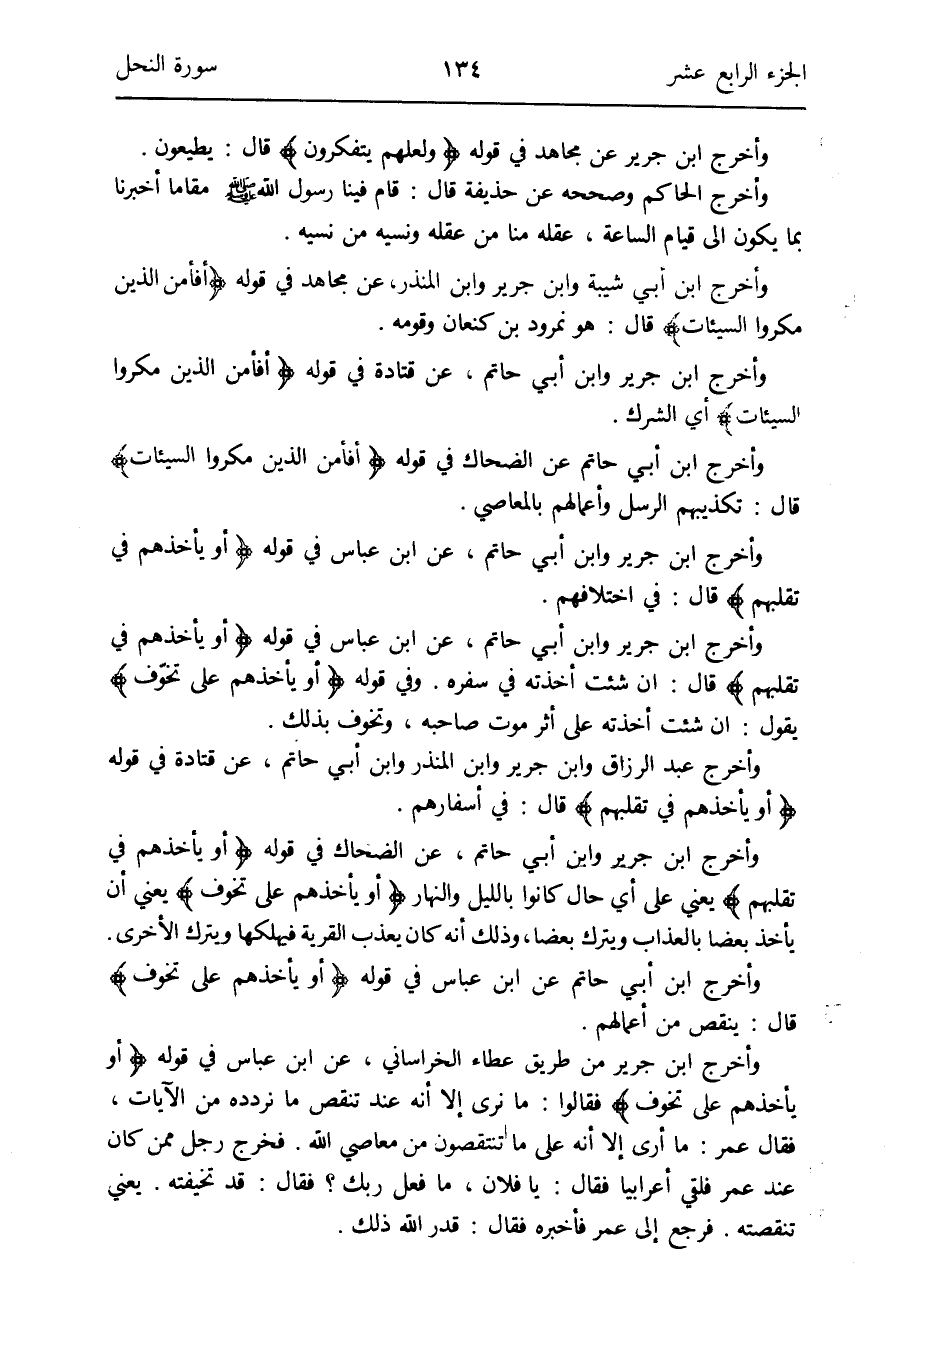 الجزء الرابع عشر ١٣٤ سورة النحل
وأخرج ابن جرير عن مجاهد في قوله ﴿ ولعلهم يتفكرون ﴾ قال : يطيعون .
وأخرج الحاكم وصححه عن حذيفة قال : قام فينا رسول الله ﷺ مقاما أخبرنا
بما يكون الى قيام الساعة ، عقله منا من عقله ونسيه من نسيه .
وأخرج ابن أبي شيبة وابن جرير وابن المنذر، عن مجاهد في قوله ﴿أفأمن الذين
مكروا السيئات﴾ قال : هو نمرود بن كنعان وقومه .
وأخرج ابن جرير وابن أبي حاتم ، عن قتادة في قوله ﴿ أفأمن الذين مكروا
السيئات﴾ أي الشرك .
وأخرج ابن أبي حاتم عن الضحاك في قوله ﴿ أفأمن الذين مكروا السيئات﴾
قال : تكذيبهم الرسل وأعمالهم بالمعاصي .
وأخرج ابن جرير وابن أبي حاتم ، عن ابن عباس في قوله ﴿ أو يأخذهم في
تقلبهم ﴾ قال : في اختلافهم .
وأخرج ابن جرير وابن أبي حاتم ، عن ابن عباس في قوله ﴿ أو يأخذهم في
تقلبهم ﴾ قال : ان شئت أخذته في سفره . وفي قوله ﴿ أو يأخذهم على تخوّف ﴾
يقول : ان شئت أخذته على أثر موت صاحبه ، وتخوف بذلك .
وأخرج عبد الرزاق وابن جرير وابن المنذر وابن أبي حاتم ، عن قتادة في قوله
﴿ أو يأخذهم في تقلبهم ﴾ قال : في أسفارهم .
وأخرج ابن جرير وابن أبي حاتم ، عن الضحاك في قوله ﴿ أو يأخذهم في
تقلبهم ﴾ يعني على أي حال كانوا بالليل والنهار ﴿ أو يأخذهم على تخوف ﴾ يعني أن
يأخذ بعضا بالعذاب ويترك بعضا، وذلك أنه كان يعذب القرية فيهلكها ويترك الأخرى.
وأخرج ابن أبي حاتم عن ابن عباس في قوله ﴿ أو يأخذهم على تخوف ﴾
قال : ينقص من أعمالهم .
وأخرج ابن جرير من طريق عطاء الخراساني ، عن ابن عباس في قوله ﴿ أو
يأخذهم على تخوف ﴾ فقالوا : ما نرى إلا أنه عند تنقص ما نردده من الآيات ،
فقال عمر : ما أرى إلا أنه على ما تنتقصون من معاصي الله . فخرج رجل ممن كان
عند عمر فلقي أعرابيا فقال : يا فلان ، ما فعل ربك ؟ فقال : قد تخيفته . يعني
تنقصته . فرجع إلى عمر فأخبره فقال : قدر الله ذلك .